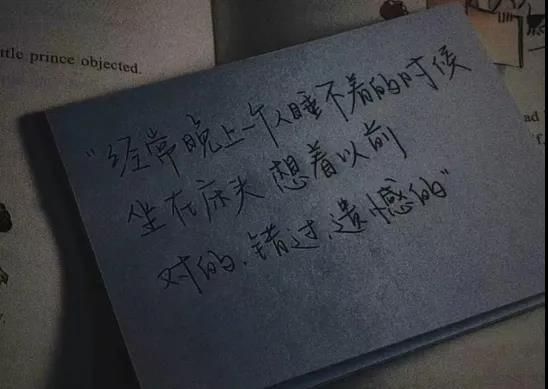 ttle prince objected.
"经常晚上一个人睡不着的时候
坐在床头 想着以前
对的、错过、遗憾的"
ad